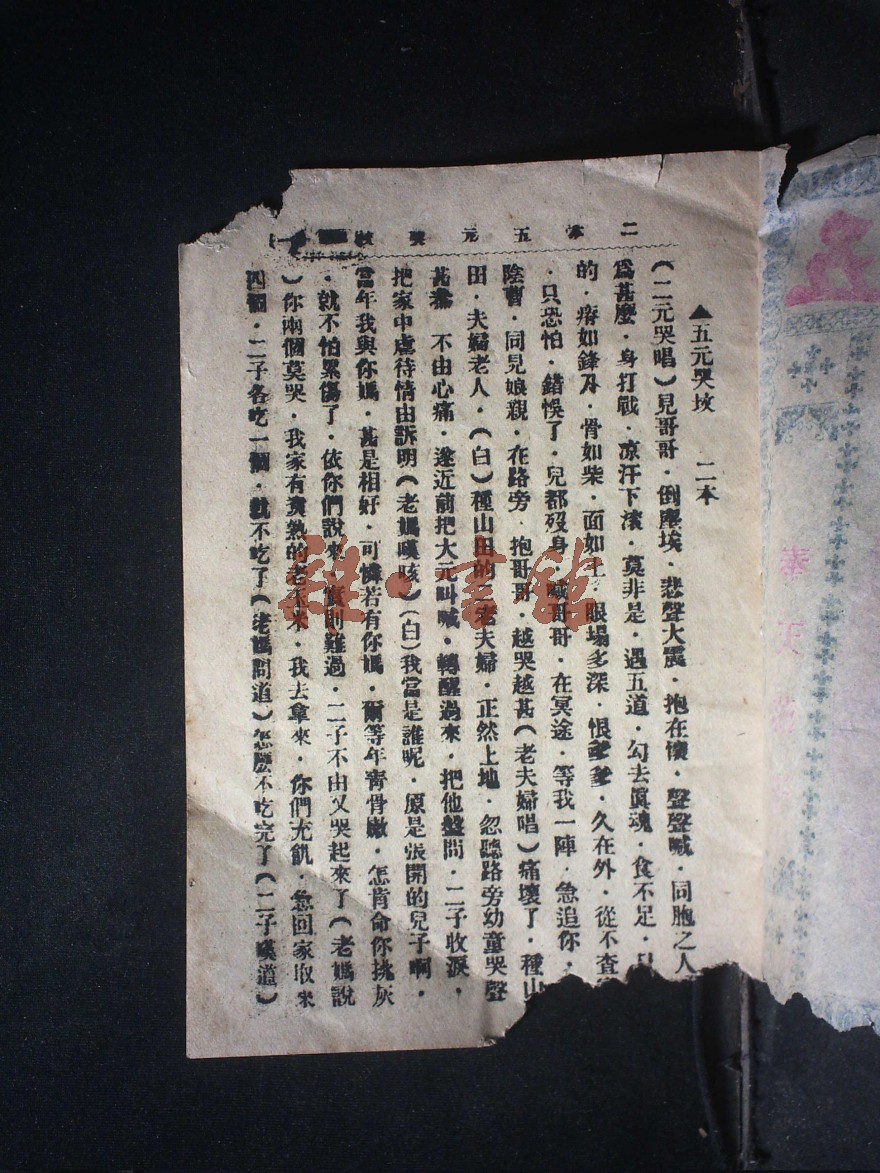 二本五元哭坟
▲五元哭坟 二本
(二元哭唱)見哥哥·倒塵埃·悲聲大震·抱在懷·聲聲喊·同胞之人
爲甚麼·身打戰·凉汗下滾·莫非是·遇五道·勾去眞魂·食不足·
的·瘠如鋒刄·骨如柴·面如土 眼塲多深·恨爹爹·久在外·從不查
·只恐怕·錯悞了·兒都歿身 喊哥哥·在冥途·等我一陣·急追你·
陰曹·同見娘親·在路旁 抱哥哥·越哭越甚(老夫婦唱)痛壞了·種山
田·夫婦老人·(白)種山田的二老夫婦·正然上地·忽聽路旁幼童哭聲
甚 不由心痛·遂近前把大元叫喊·轉醒過來·把他盤問·二子收淚·
把家中虐待情由訴明(老媽嘆咳)(白)我當是誰呢·原是張開的兒子啊·
當年我與你媽·甚是相好·可憐若有你媽·爾等年靑骨嫩·怎肯命你挑灰
·就不怕累傷了·依你們說來 實則難過·二子不由又哭起來了(老媽說
)你兩個莫哭·我家有煑熟的老玉米·我去拿來·你們充飢·急回家取來
四個·二子各吃一個·就不吃了(老媽問道)怎麼不吃完了(二子嘆道)
雜·書館